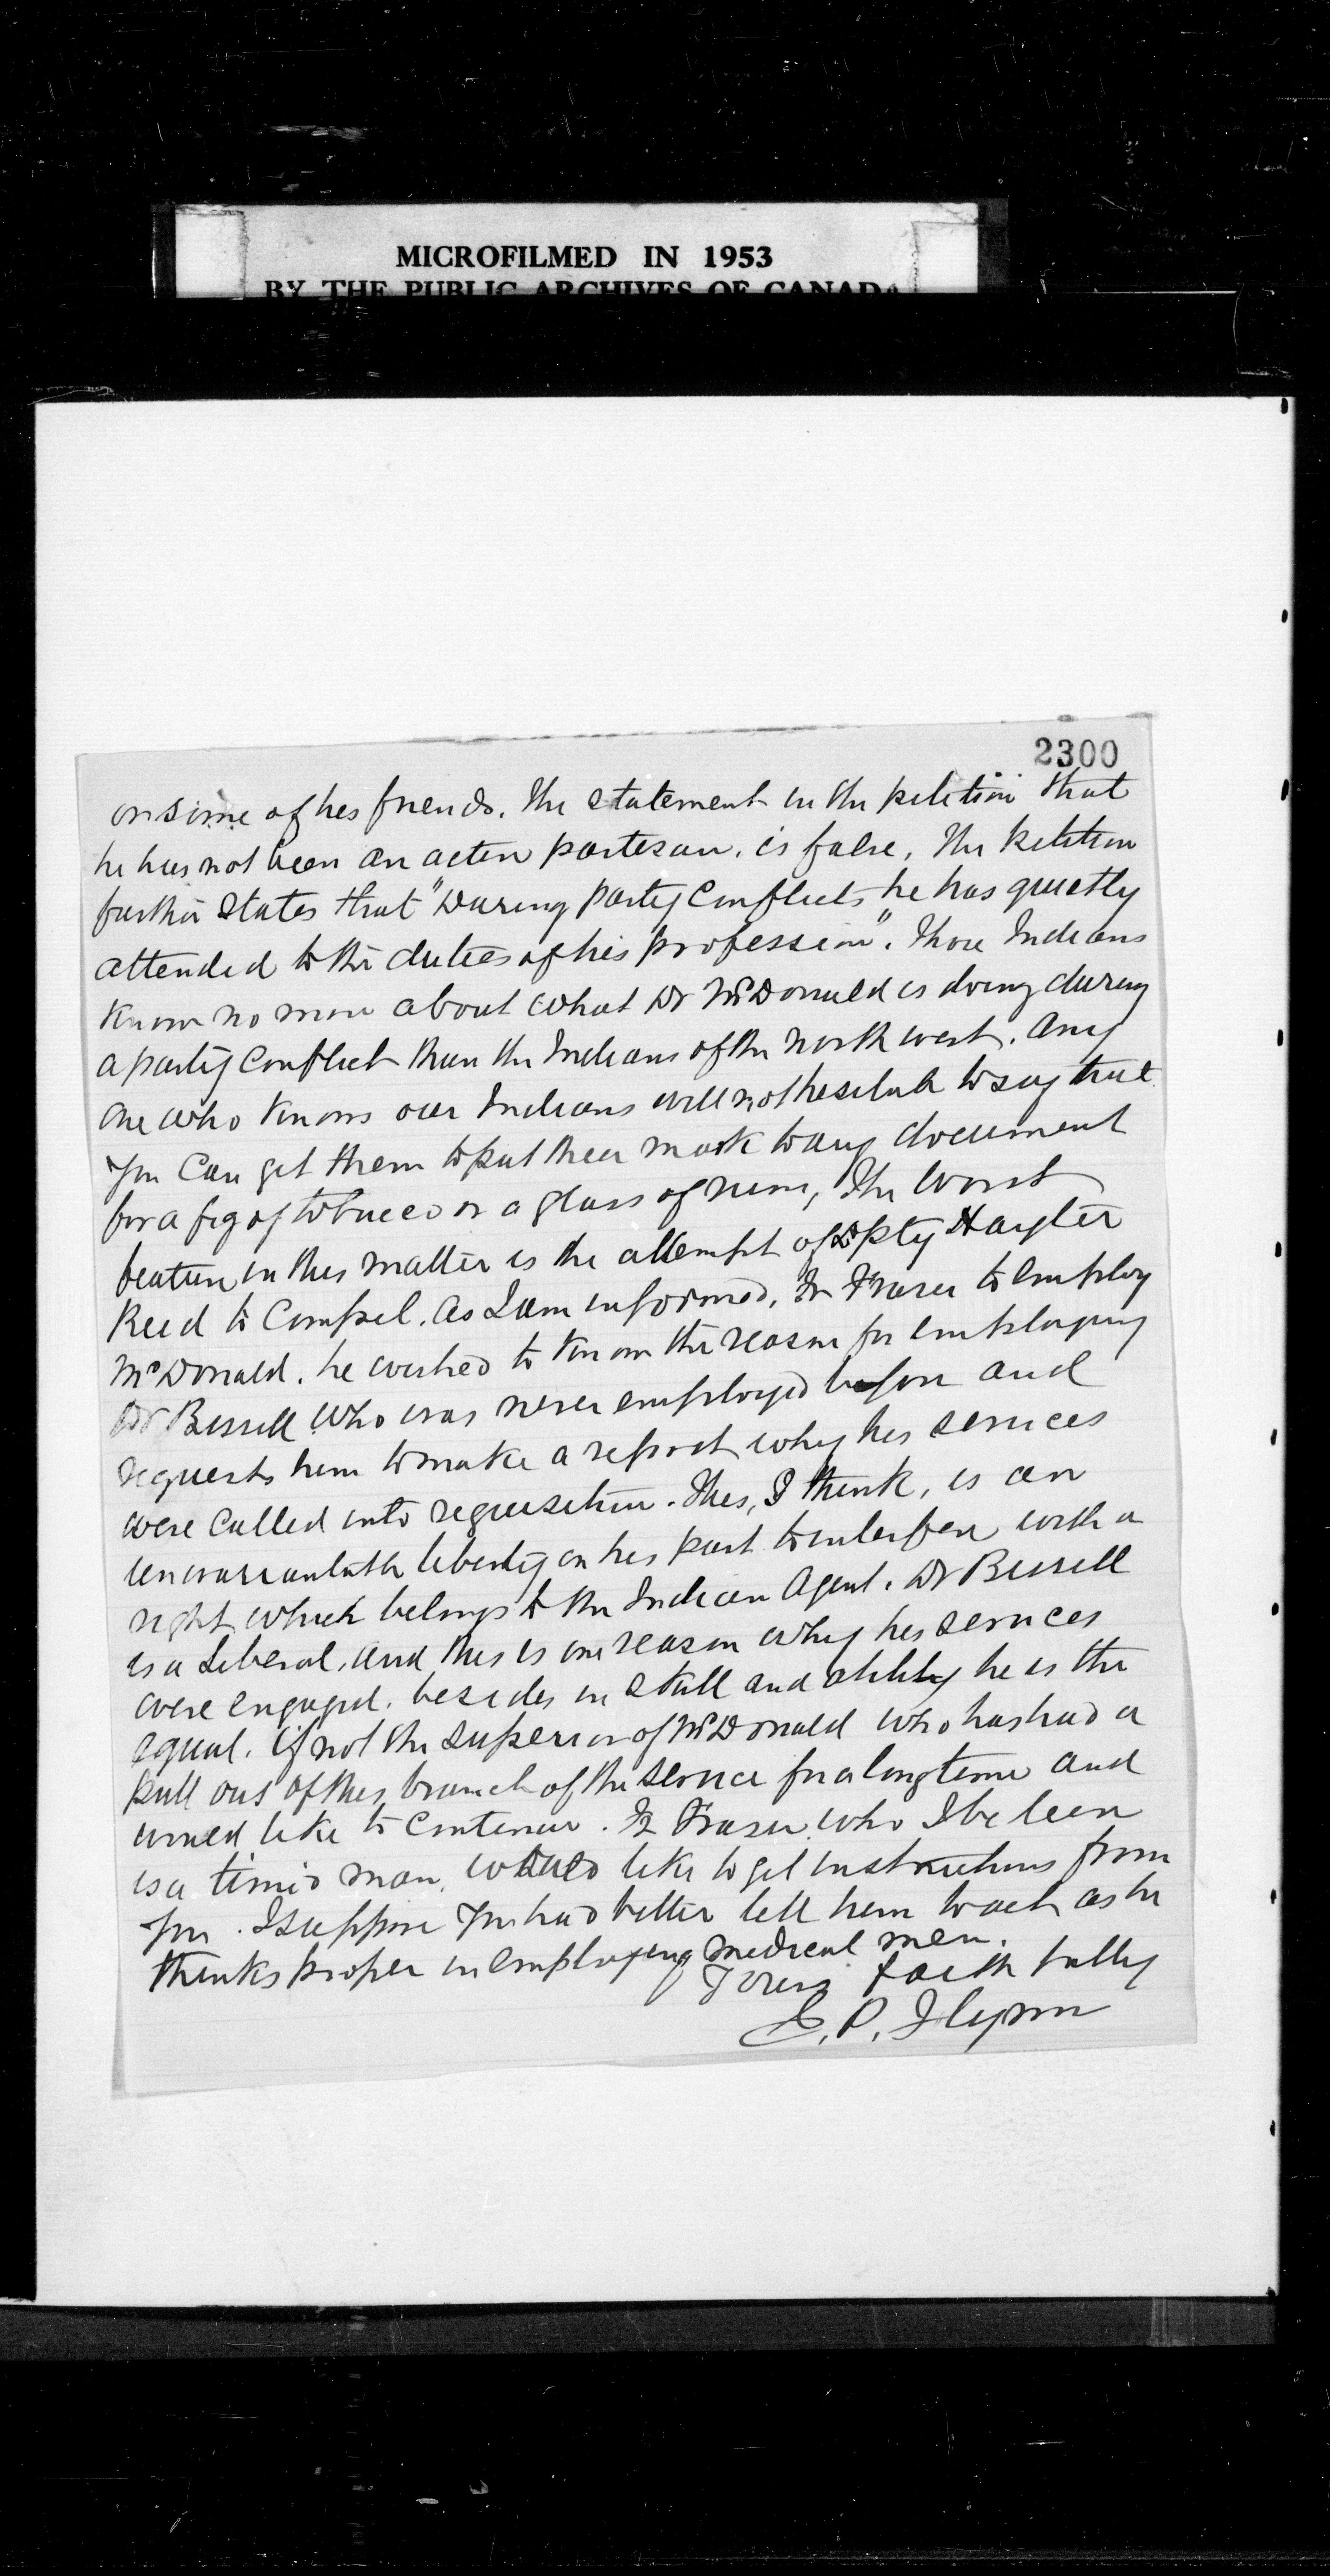 MICROFILMED IN 1953
BY THE PUBLIC ARCHIVES OF CANADA
2300
or some of his friends. The statement in the petition that
he has not been an active partesan. is false. The petition
further states that "During party Conflicts he has quietly
attended to the duties of his profession". Those Indians
know no more about what Dr McDonald is doing during
a party Conflict than the Indians of the north west. Any
one who knows our Indians will not hesitate to say that
you Can get them to put their mark to any document
for a fig of tobacco or a glass of rum, The worst
feature in this matter is the attempt of Dpty Hayter
Reed to Compel. as I am informed, Dr Fraser to employ
McDonald. he wished to know the reason for employing
Dr Bissell who was never employed before and
requests him to make a report why his services
were Called into requisition. This, I think, is an
unwarrantable liberty on his part to interfere with a
right which belongs to the Indian Agent. Dr Bissell
is a Liberal, and this is one reason why his services
were engaged. besides in skill and ability he is the
equal. if not the superior of McDonald who has had a
pull out of this branch of the service for a long time and
would like to Continue. Dr Fraser who I be leeve
is a timid man, would like to get instructions from
you. I suppose you had better tell him to act as he
thinks proper in employing medical men.
Yours faithfully
E. P. Flynn